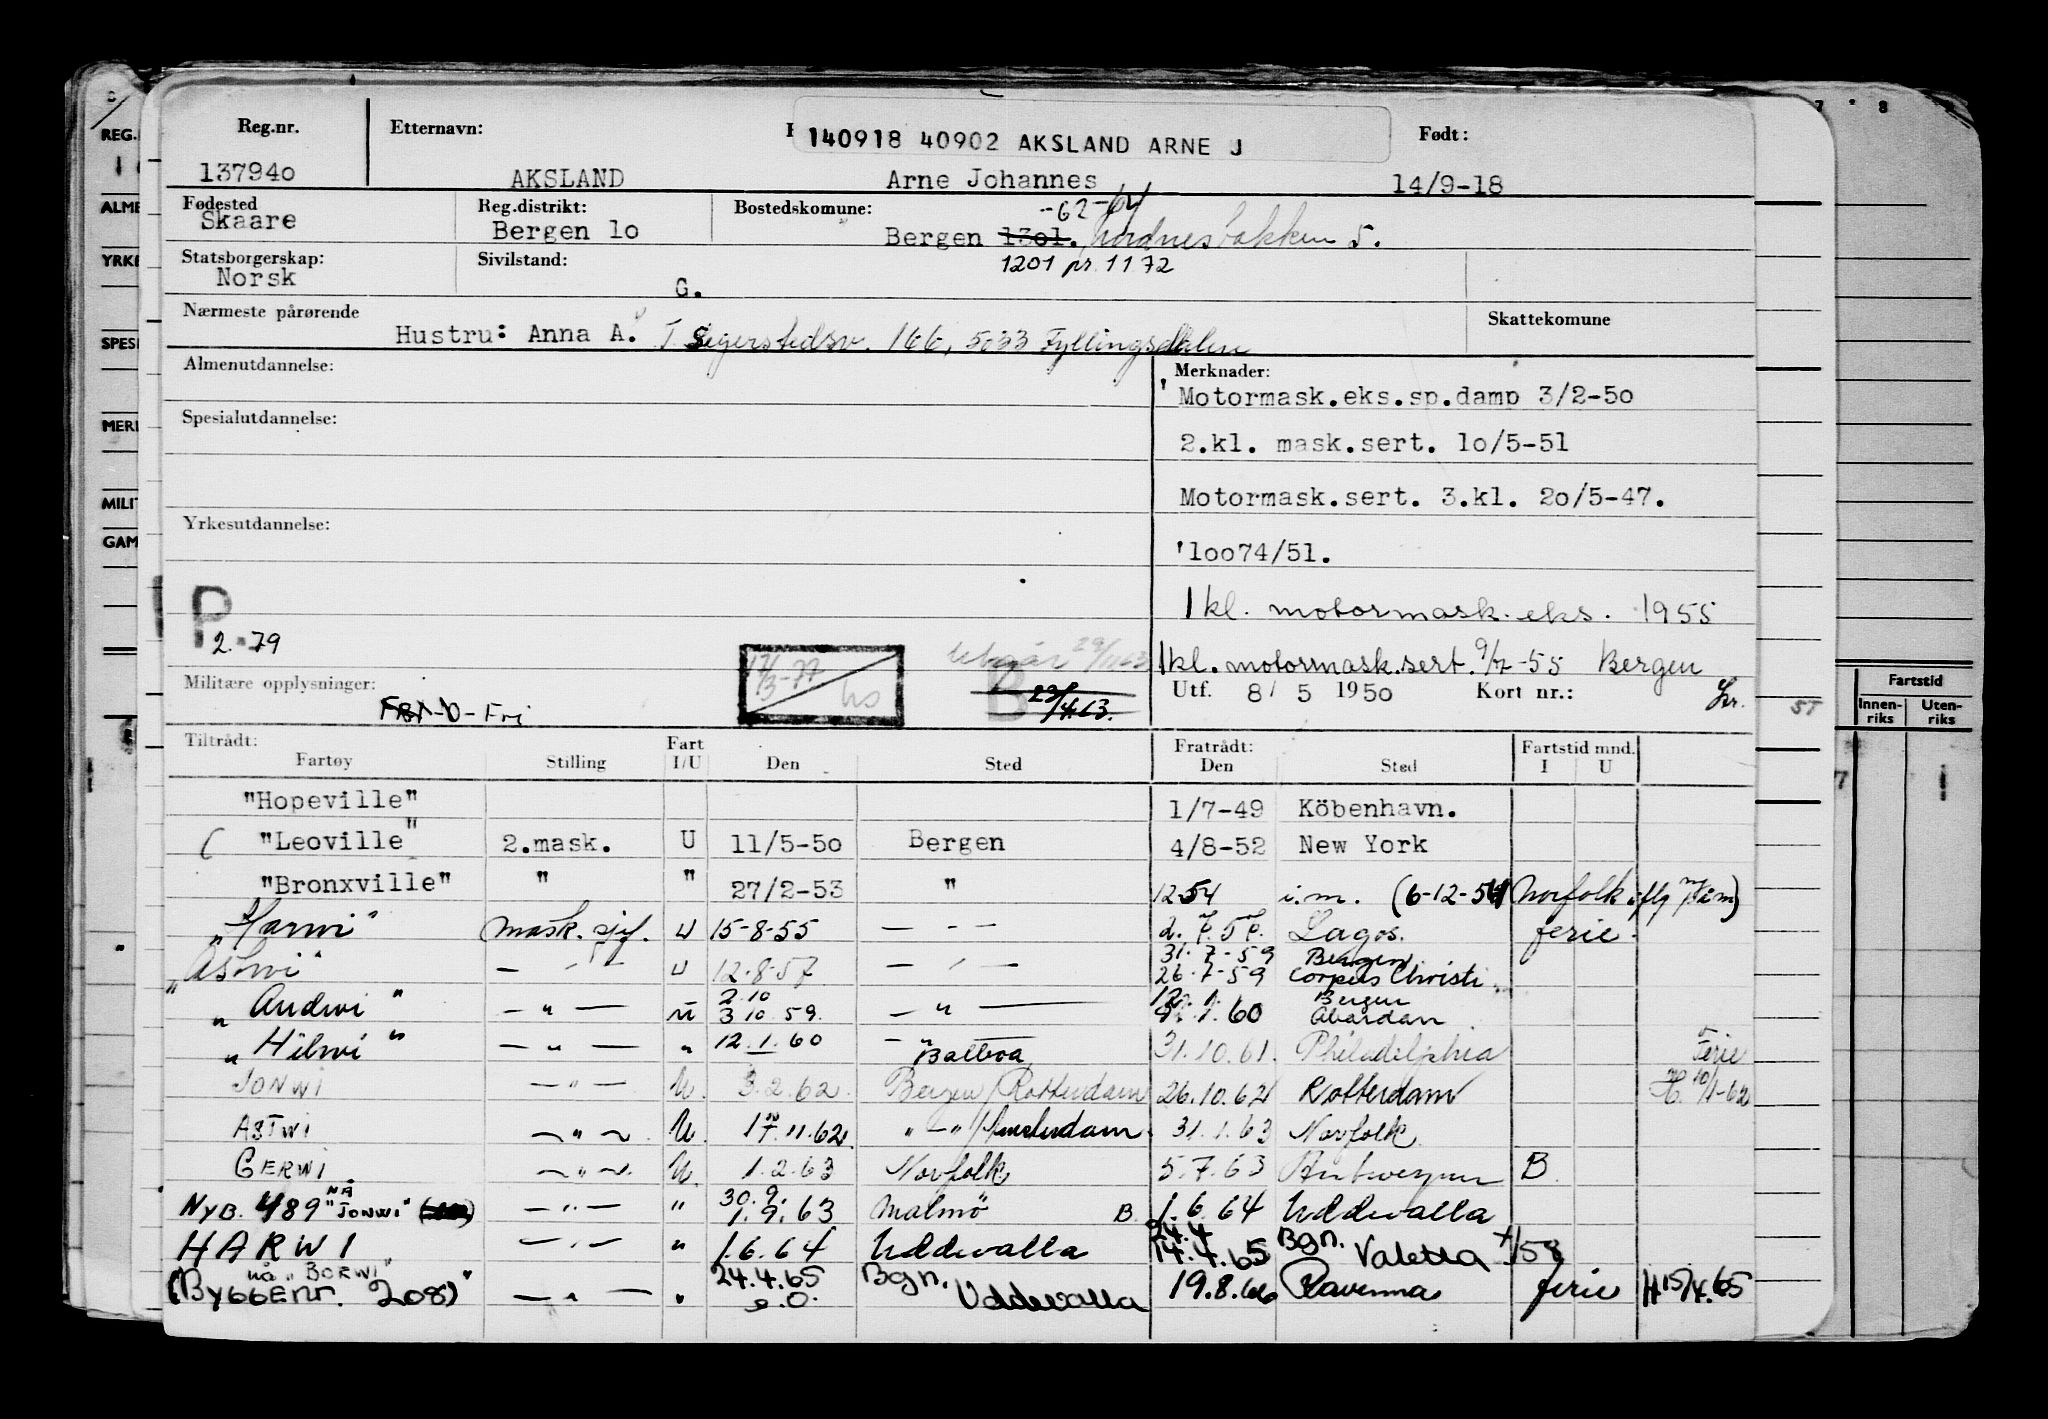 Reg.nr. Etternavn: 140918 40902 AKSLAND ARNE J Født:
137940 AKSLAND Arne Johannes 14/9-18
Fødested Reg.distrikt: Bostedskomune: -62-64
Skaare Bergen 10 Bergen 1301. Nordnesbakken 5.
Statsborgerskap: Sivilstand: 1201 pr. 1172
Norsk G.
Nærmeste pårørende Skattekomune
Hustru: Anna A. T. Segerstedsv. 166, 5033 Fyllingsdalen
Almenutdannelse: Merknader:
'Motormask.eks.sp.damp 3/2-50
Spesialutdannelse:
2.kl. mask.sert. 10/5-51
Motormask.sert. 3.kl. 20/5-47.
Yrkesutdannelse:
'10074/51.
P 1 kl. motormask.eks. 1955
2.79
1kl. motormask.sert. 9/7-55 Bergen
17/3-77
Militære opplysninger: B 23/4.63. Utf. 8/5 1950 Kort nr.:
-Fri
Tiltrådt: Fart Fratrådt: Fartstid mnd.
Fartøy Stilling I/U Den Sted Den Sted I U
"Hopeville" 1/7-49 Köbenhavn.
( "Leoville" 2.mask. U 11/5-50 Bergen 4/8-52 New York
"Bronxville" " " 27/2-53 " 12-54 i.m. (6-12-54 Norfolk
"Harwi" Mask.sjef. U 15-8-55 — - — 2.7.57. Lagos. ferie.
31.7-59 Bergen
"Aswi" — " — U 12.8-57 — " — 26.7-59 Corpus Christi
2.10 12.1. Bergen
"Andwi" — " — U 3.10.59. — " — 1.60 Abardan
"Hilwi" — " — " 12.1.60 — " — Balboa 31.10.61. Philadelphia Ferie
JONWI — " — U. 3.2.62. Bergen/Rotterdam 26.10.62 Rotterdam H. 10/1-62
ASTWI — " — U. 17.11.62 " — "/Amsterdam 31.1.63 Norfolk.
GERWI — " — U. 1.2.63 Norfolk 5.7.63 Antwerpen B.
NÅ 30.9.
NYB. 489 "JONWI" — " — " 1.9.63 Malmö B. 1.6.64 Uddevalla
24.4 Bgn.
HARWI — " — " 1.6.64 Uddevalla 14.4.65 Valetta
nå "BORWI" 24.4.65 Bgn.
(Byggenr. 208)" — " — " e.o. Uddevalla 19.8.66 Ravenna ferie H.15/4.65
REG.
ALME
YRKE
SPESI
MERK
MILIT
GAM
7 8
Fartstid
Innen-riks Uten-riks